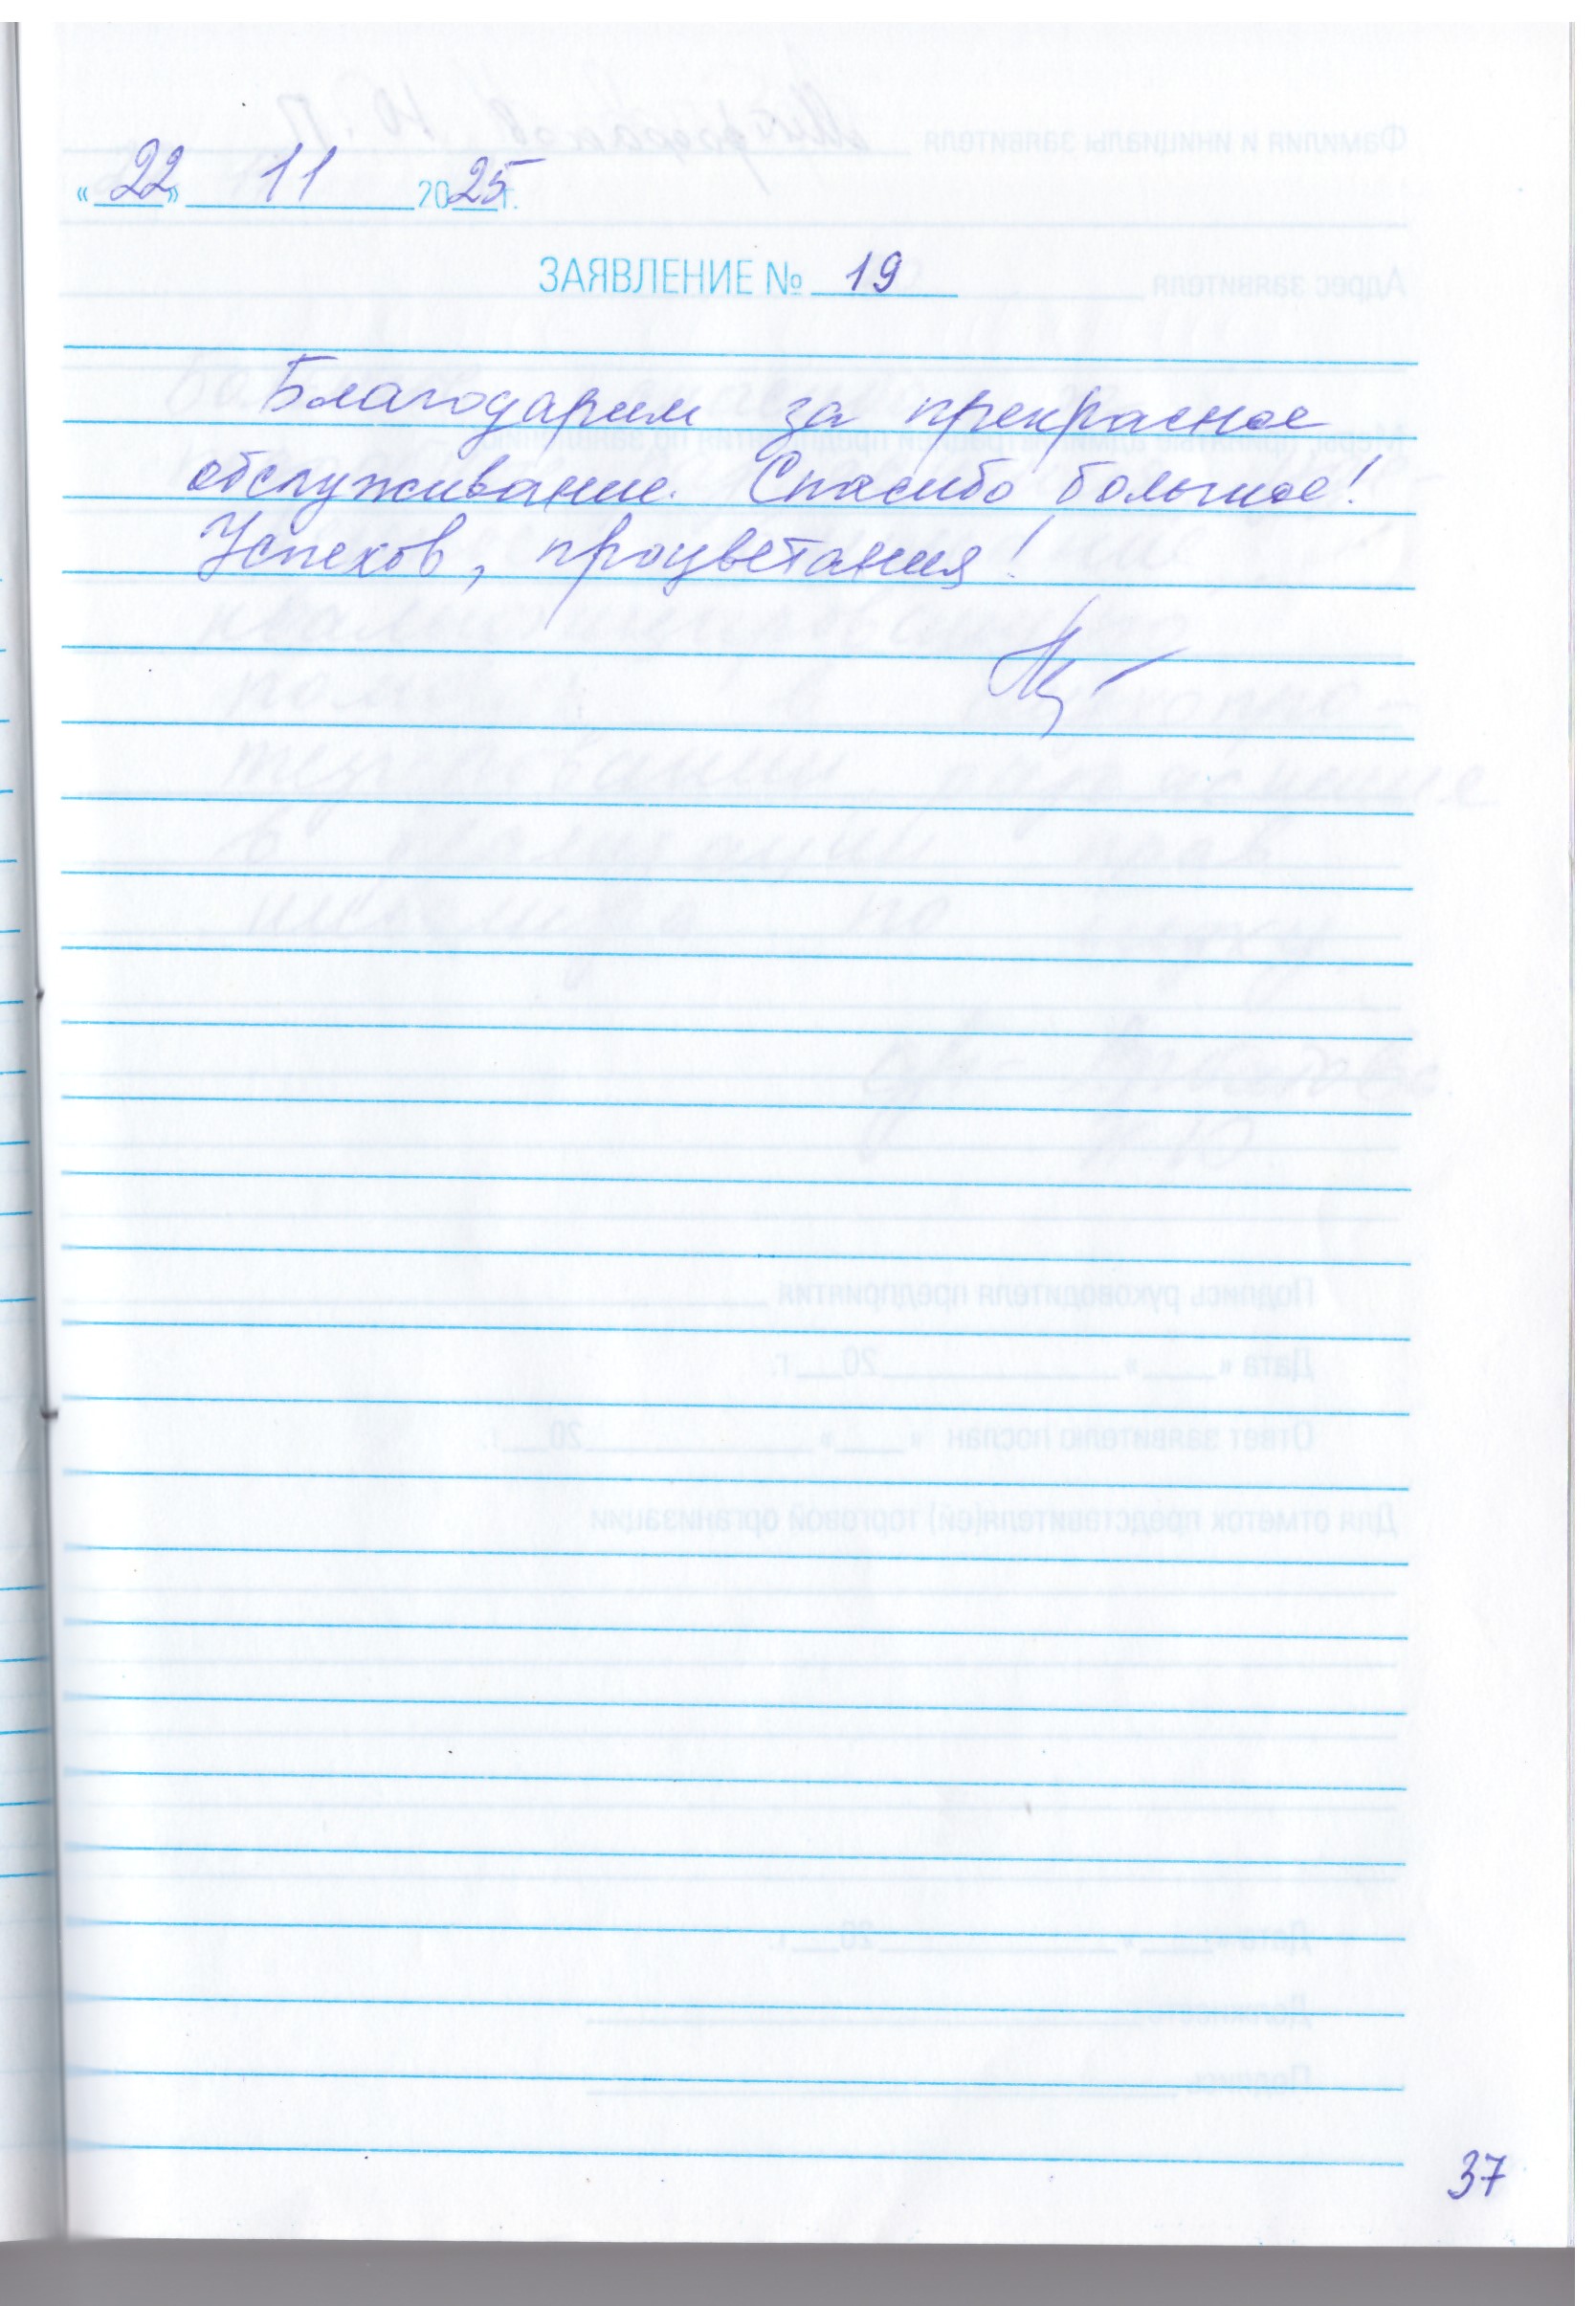 «22» 11 2025 г.
ЗАЯВЛЕНИЕ № 19
Благодарим за прекрасное
обслуживание. Спасибо большое!
Успехов, процветания!
37